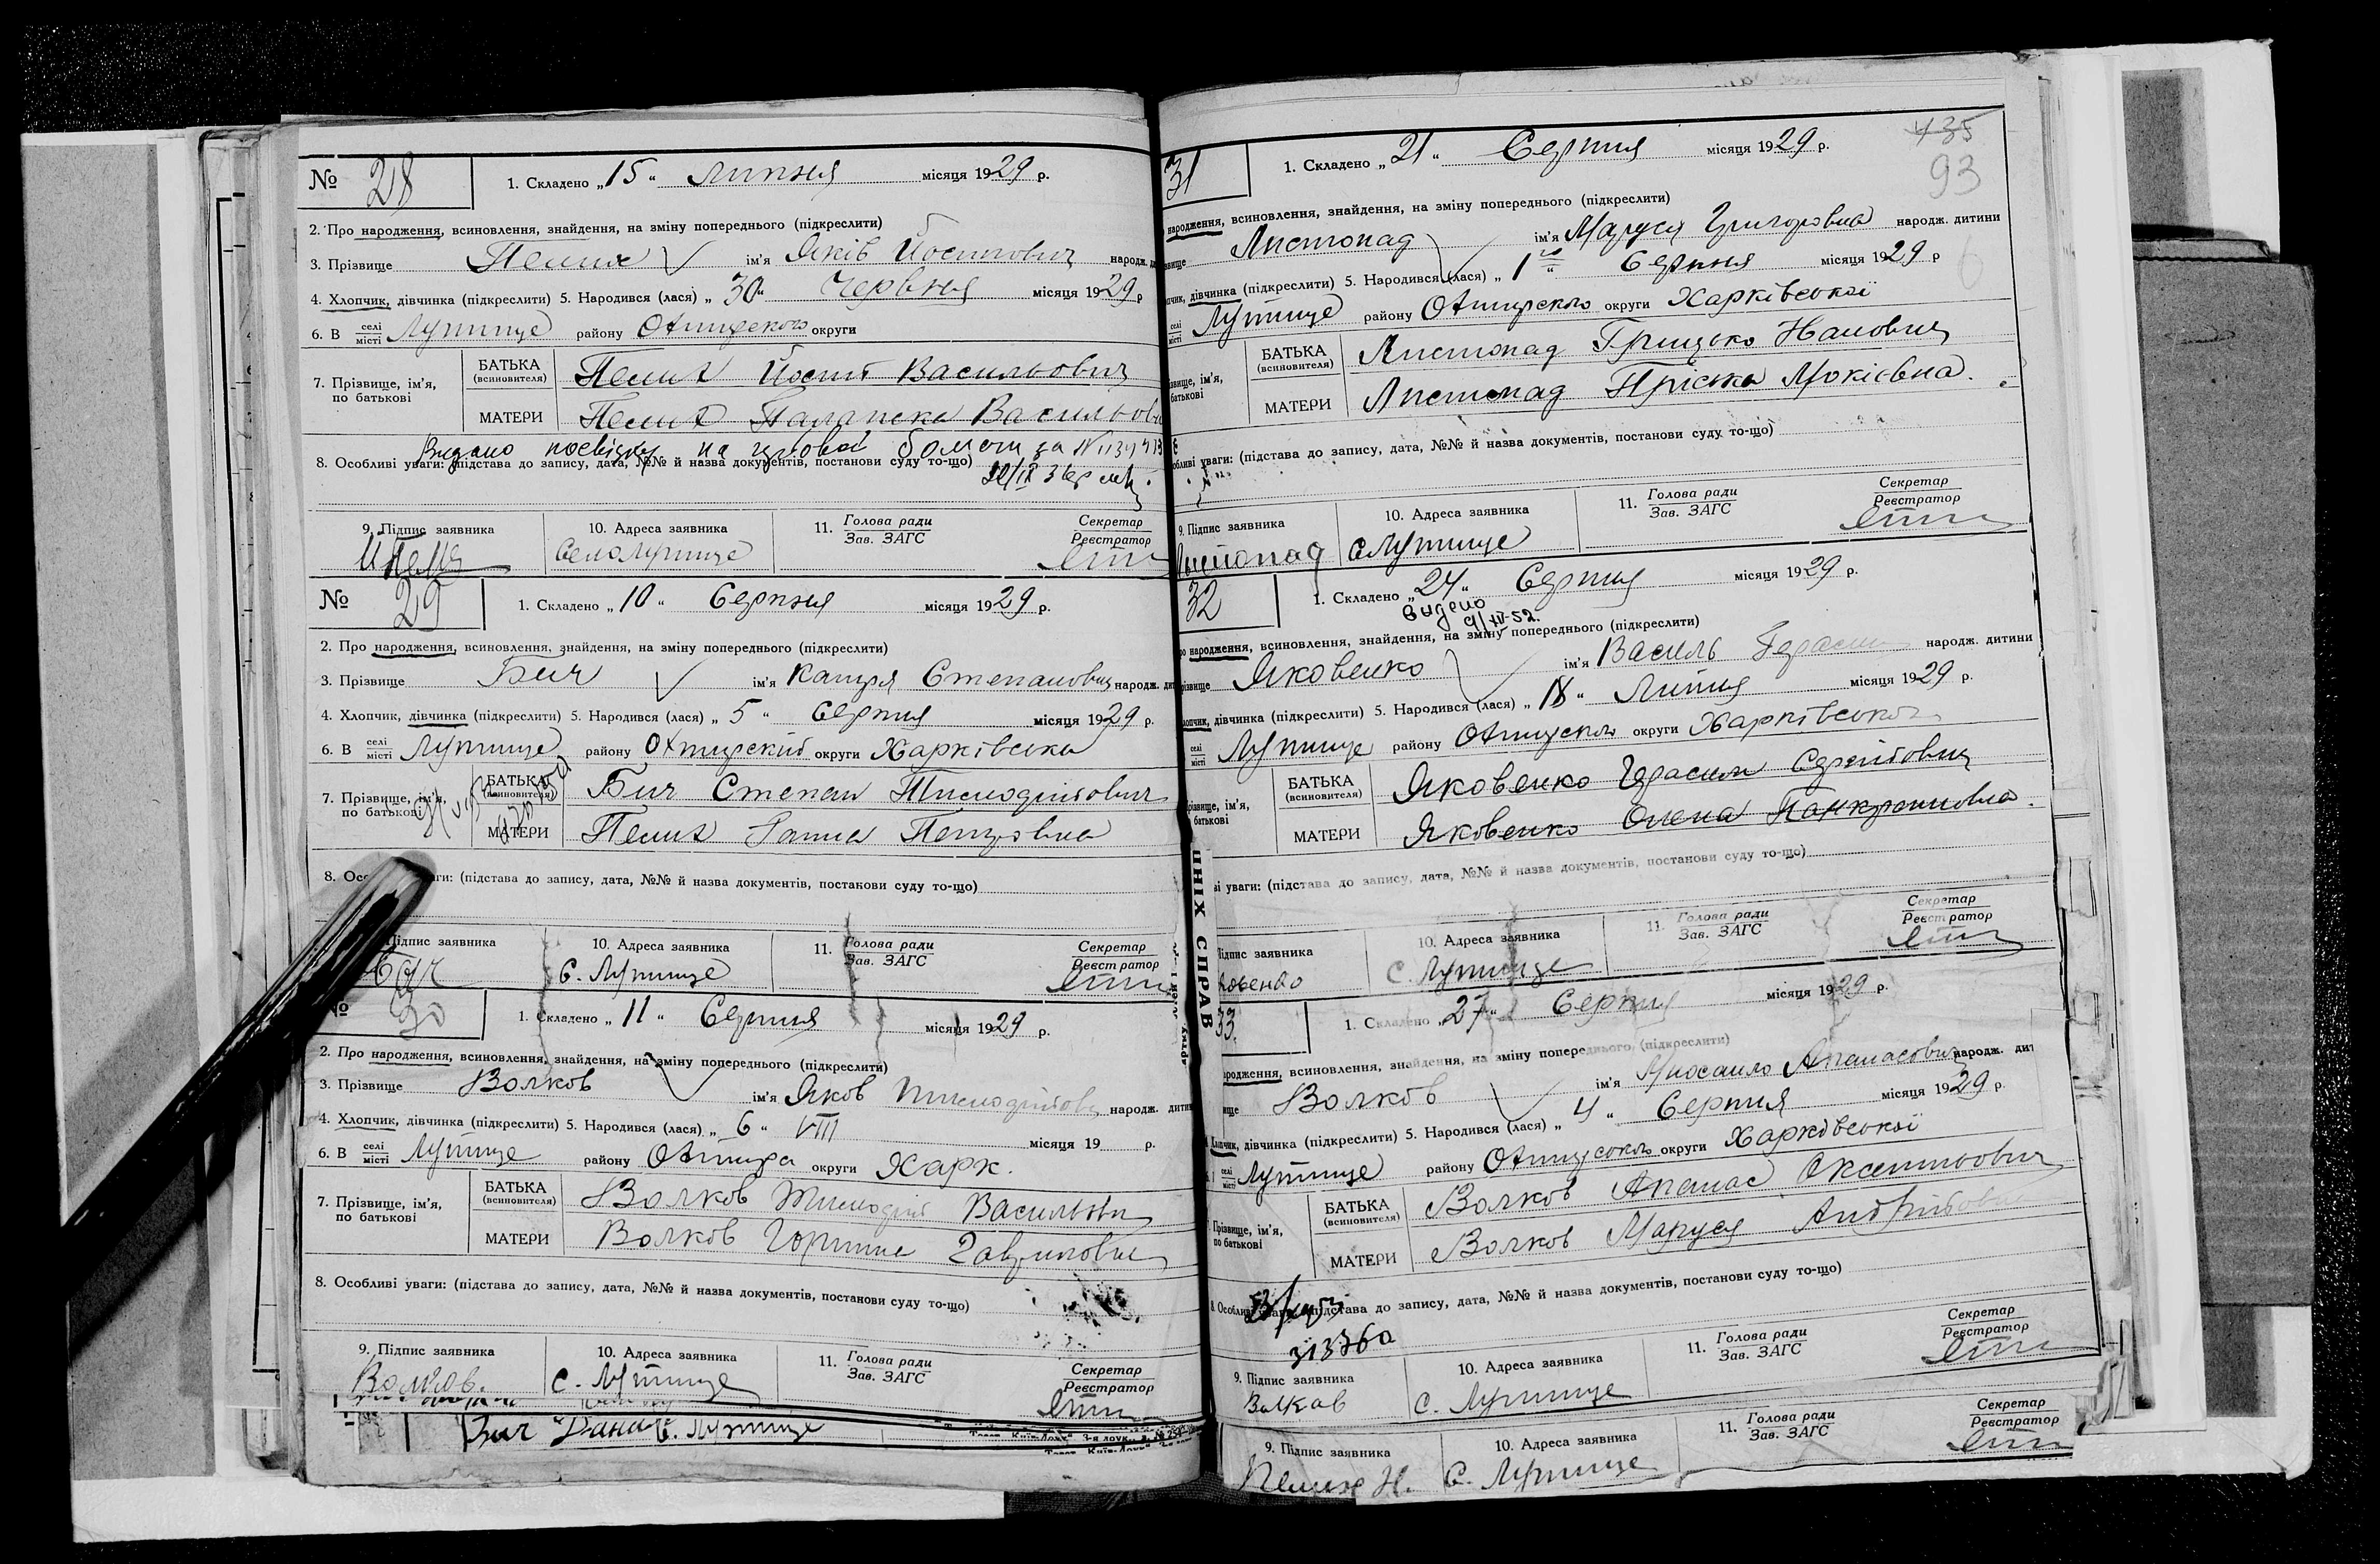 № 28
1. Складено „ 15 “ Липня місяця 1929 р.
2. Про народження, всиновлення, знайдення, на зміну попереднього (підкреслити)
3. Прізвище Пелих ім'я Яків Йосипович народж.
4. Хлопчик, дівчинка (підкреслити) 5. Народився (лася) „ 30 “ Червня місяця 1929 р
6. В селі місті Лутище району Охтирського округи
7. Прізвище, ім'я, по батькові
БАТЬКА (всиновителя) Пелих Йосип Васильович
МАТЕРИ Пелих Палажка
Видано посвідку на
8. Особливі уваги: (підстава до запису, дата, №№ й назва документів, постанови суду то-що)
9. Підпис заявника 10. Адреса заявника 11. Голова ради Зав. ЗАГС Секретар Реєстратор
Село Лутище
№ 29
1. Складено „ 10 “ Серпня місяця 1929 р.
2. Про народження, всиновлення, знайдення, на зміну попереднього (підкреслити)
3. Прізвище Бич ім'я Катря Степанович народж.
4. Хлопчик, дівчинка (підкреслити) 5. Народився (лася) „ 5 “ Серпня місяця 1929 р.
6. В селі місті Лутище району Охтирский округи Харківська
7. Прізвище, ім'я, по батькові
БАТЬКА (всиновителя) Бич Степан Тимофійович
МАТЕРИ Пелих Ганна Петровна
8. уваги: (підстава до запису, дата, №№ й назва документів, постанови суду то-що)
Підпис заявника 10. Адреса заявника 11. Голова ради Зав. ЗАГС Секретар Реєстратор
Бич с. Лутище
№ 30
1. Складено „ 11 “ Серпня місяця 1929 р.
2. Про народження, всиновлення, знайдення, на зміну попереднього (підкреслити)
3. Прізвище Волков ім'я Яков народж. дитини
4. Хлопчик, дівчинка (підкреслити) 5. Народився (лася) „ 6 “ VIII місяця 19 р.
6. В селі місті Лутище району Охтирса округи Харк.
7. Прізвище, ім'я, по батькові
БАТЬКА (всиновителя) Волков Тимофій Васильович
МАТЕРИ Волков Горпина Гавриловна
8. Особливі уваги: (підстава до запису, дата, №№ й назва документів, постанови суду то-що)
9. Підпис заявника 10. Адреса заявника 11. Голова ради Зав. ЗАГС Секретар Реєстратор
Волков. с. Лутище
Бич с. Лутище
435
93
31
1. Складено „ 21 “ Серпня місяця 1929 р.
народження, всиновлення, знайдення, на зміну попереднього (підкреслити)
Листопад ім'я Маруся Григоровна народж. дитини
дівчинка (підкреслити) 5. Народився (лася) „ 1го “ Серпня місяця 1929 р
селі місті Лутище району Охтирского округи Харківської
БАТЬКА (всиновителя) Листопад Грицько
МАТЕРИ Листопад Пріська Мокіевна.
уваги: (підстава до запису, дата, №№ й назва документів, постанови суду то-що)
9. Підпис заявника 10. Адреса заявника 11. Голова ради Зав. ЗАГС Секретар Реєстратор
Листопад с Лутище
32
1. Складено „ 24 “ Серпня місяця 1929 р.
видено
народження, всиновлення, знайдення, на зміну попереднього (підкреслити)
Яковенко ім'я Василь народж. дитини
дівчинка (підкреслити) 5. Народився (лася) „ 18 “ Липня місяця 1929 р.
селі місті Лутище району Охтирского округи Харківської
БАТЬКА (всиновителя) Яковенко Герасим Сергійович
МАТЕРИ Яковенко Олена Панкратовна.
уваги: (підстава до запису, дата, №№ й назва документів, постанови суду то-що)
Підпис заявника 10. Адреса заявника 11. Голова ради Зав. ЗАГС Секретар Реєстратор
с. Лутище
ПНІХ СПРАВ
33.
1. Складено „ 27 “ Серпня місяця 1929 р.
народження, всиновлення, знайдення, на зміну попереднього (підкреслити)
Волков ім'я Михайло Апанасович народж.
Хлопчик, дівчинка (підкреслити) 5. Народився (лася) „ 4 “ Серпня місяця 1929 р.
селі місті Лутище району Охтирского округи Харківської
7. Прізвище, ім'я, по батькові
БАТЬКА (всиновителя) Волков Апанас Оксентьович
МАТЕРИ Волков Маруся Андріївна
8. Особливі уваги: (підстава до запису, дата, №№ й назва документів, постанови суду то-що)
9. Підпис заявника 10. Адреса заявника 11. Голова ради Зав. ЗАГС Секретар Реєстратор
Валков с. Лутище
9. Підпис заявника 10. Адреса заявника 11. Голова ради Зав. ЗАГС Секретар Реєстратор
Пелих Н. с. Лутище